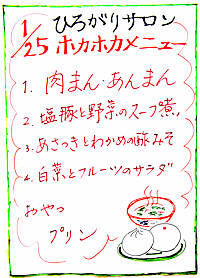 1/25 ひろがりサロン
ホカホカメニュー
1. 肉まん・あんまん
2. 塩豚と野菜のスープ煮
3. あさつきとわかめの酢みそ
4. 白菜とフルーツのサラダ
おやつ
プリン